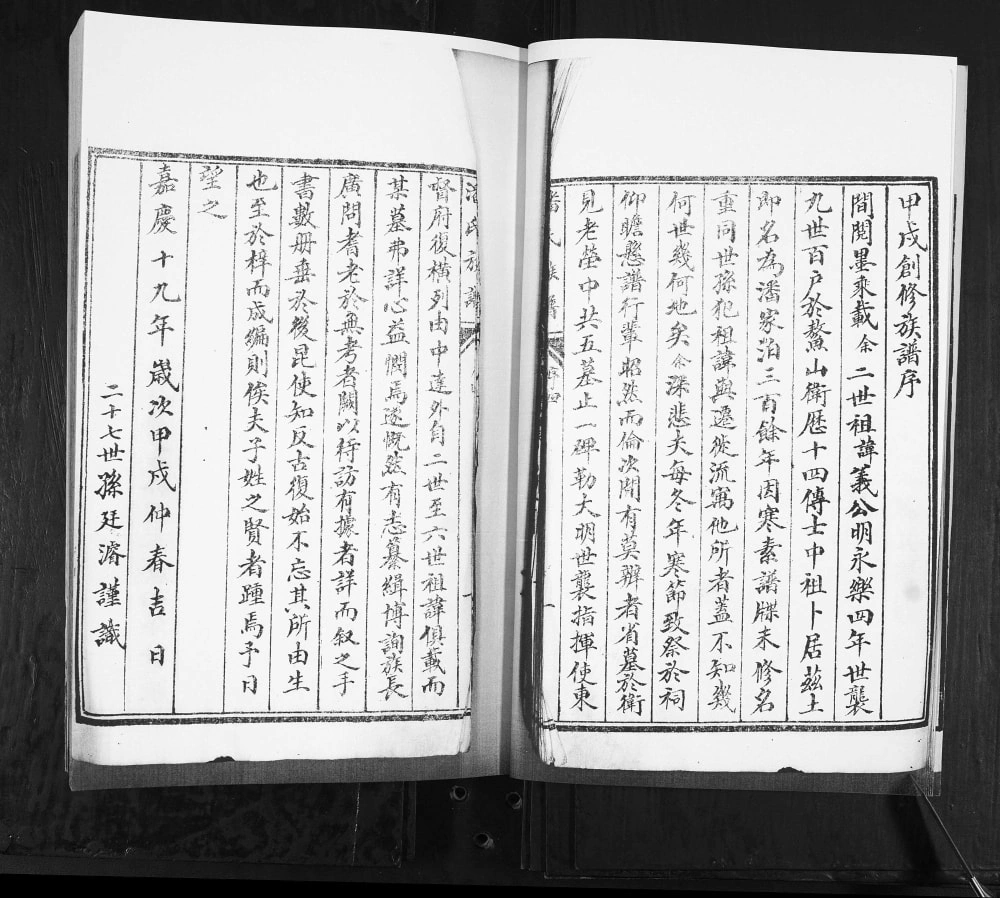 甲戌創修族譜序
間閱墨乘載余二世祖諱義公明永樂四年世襲
九世百戶於鰲山衛歷十四傳士中祖卜居茲土
即名為潘家泊三百餘年因寒素譜牒未修名
重同世孫犯祖諱與遷徙流寓他所者蓋不知幾
何世幾何地矣余深悲夫每冬年寒節致祭於祠
仰瞻懸譜行輩昭然而倫次間有莫辨者省墓於衛
見老塋中共五墓止一碑勒大明世襲指揮使東
潘氏族譜
序四
一
督府復橫列由中達外自二世至六世祖諱俱載而
某墓弗詳心益憫焉遂慨然有志纂緝博詢族長
廣問耆老於無考者闕以待訪有據者詳而叙之手
書數冊垂於後昆使知反古復始不忘其所由生
也至於梓而成編則俟夫子姓之賢者踵焉予日
望之
嘉慶十九年歲次甲戌仲春吉日
二十七世孫廷濬謹識